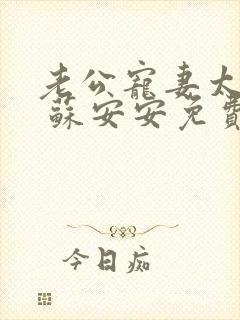 老公寵妻太
蘇安安免費
今日痴